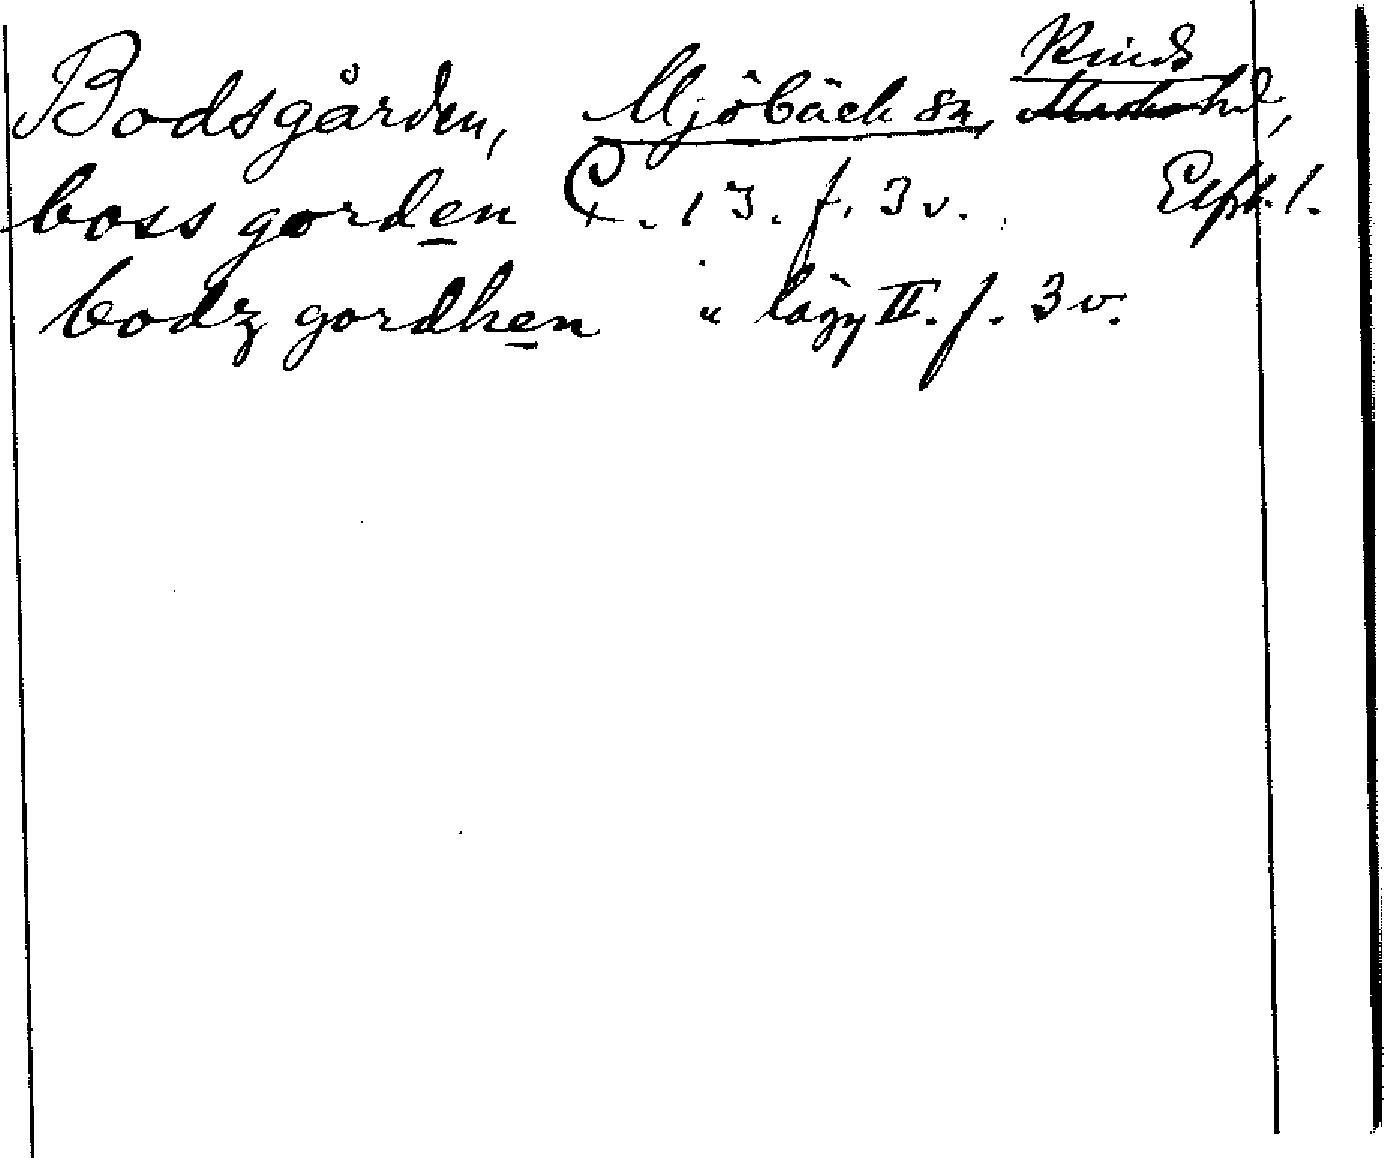 Kinds
Bodsgården, Mjöbäck sn, Marks hd,
boss gorden C. 13. f. 3v. Elfsb. l.
bodz gordhen " lägg II. f. 3v.